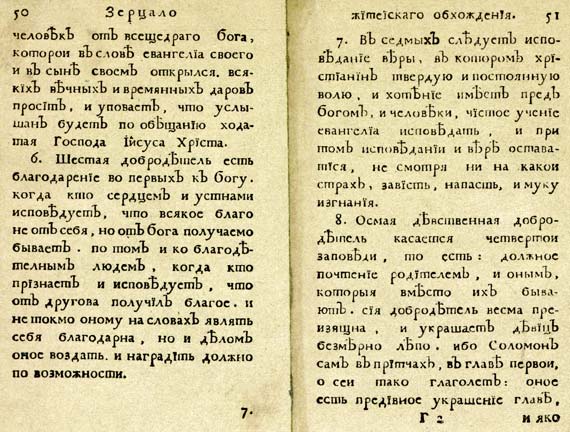 50 Зерцало
человѣкъ отъ всещедраго бога,
которои въ словѣ евангелїа своего
и въ сынѣ своемъ открылся. вся-
кїхъ вѣчныхъ и времянныхъ даровъ
просїтъ, и уповаетъ, что услы-
шанъ будетъ по обѣщанїю хода-
тая Господа Їисуса Хрїста.
6. Шестая добродѣтель есть
благодаренїе во первыхъ къ богу.
когда кто сердцемъ и устнами
исповѣдуетъ, что всякое благо
не отъ себя, но отъ бога получаемо
бываетъ. по томъ и ко благодѣ-
телнымъ людемъ, когда кто
прїзнаетъ и исповѣдуетъ, что
отъ другова получїлъ благое. и
не токмо оному на словахъ являть
себя благодарна, но и дѣломъ
оное воздать. и наградїть должно
по возможности.
7.
жїтеїскаго обхожденїя. 51
7. Въ седмыхъ слѣдуетъ испо-
вѣданїе вѣры, въ которомъ хрї-
стїанїнъ твердую и постоянную
волю, и хотѣнїе имѣетъ предъ
богомъ, и человѣки, чїстое ученїе
евангелїа исповѣдать, и при
томъ исповѣданїи и вѣрѣ остава-
тїся, не смотря ни на какои
страхъ, завїсть, напасть, и муку
изгнанїя.
8. Осмая дѣвственная добро-
дѣтель касается четвертои
заповѣди, то есть: должное
почтенїе родїтелемъ, и онымъ,
которыя вмѣсто ихъ быва-
ютъ. сїя добродѣтель весма пре-
изящна, и украшаетъ дѣвїцъ
безмѣрно лѣпо. ибо Соломонъ
самъ въ прїтчахъ, въ главѣ первои,
о сеи тако глаголетъ: оное
есть предївное украшенїе главѣ,
Г 2 и яко